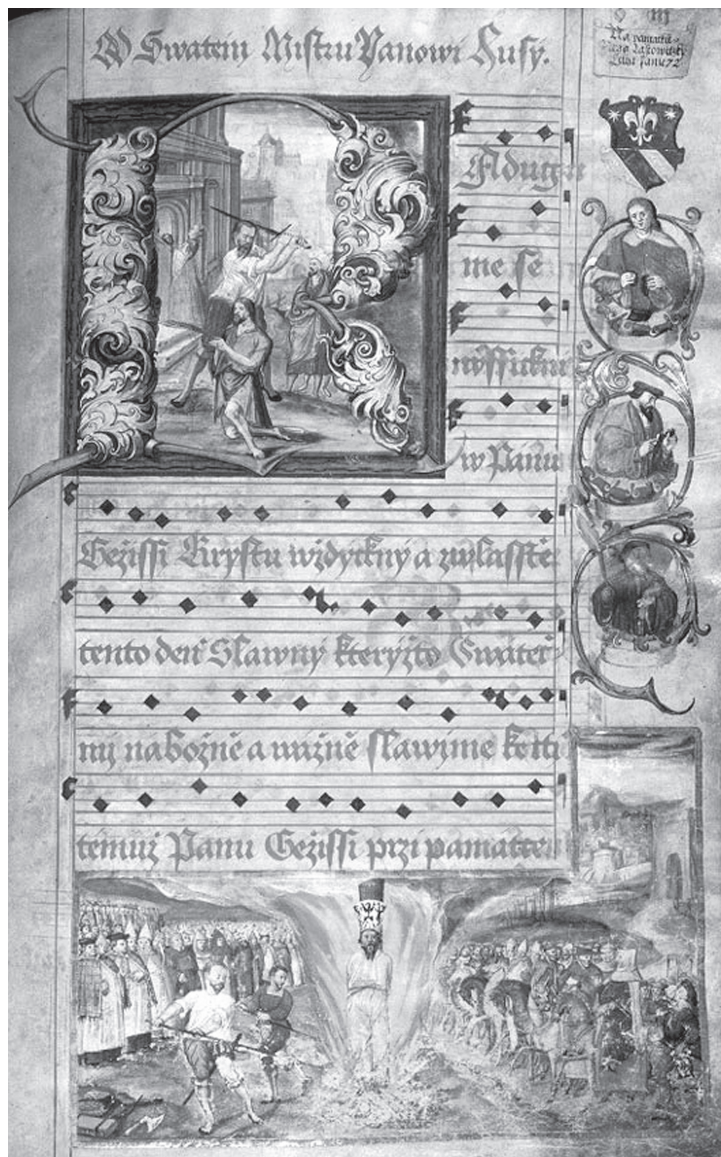 O Swatem Mistru Janowi Husy.
Na pamatku
Lita Panie 72
RAdugm
me se
wssickni
w Panu
Gežissi Krystu wždyckny a zwlasstě
tento deň Slawny kteryžto Swatet
my nabožně a wážně slawime ke cti
temuž Panu Gežissi przi pamatte